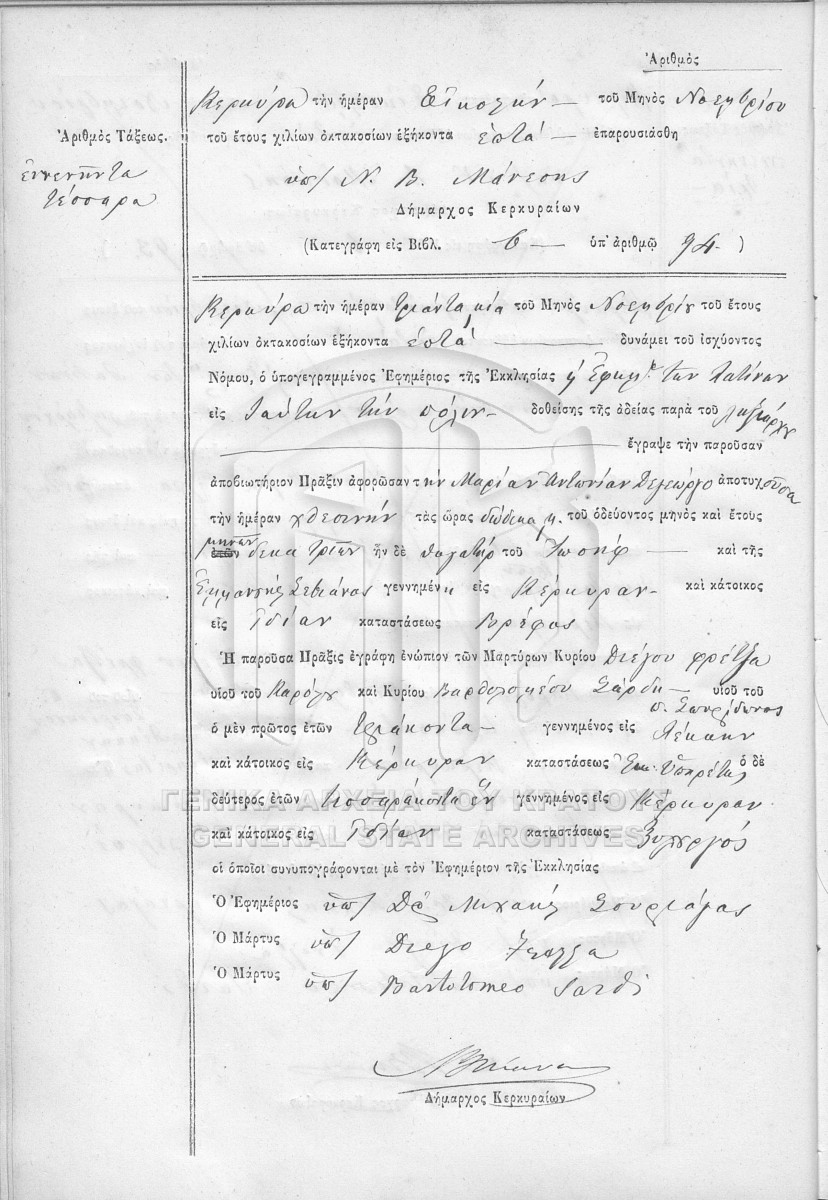 Ἀριθμὸς
Κερκύρα τὴν ἡμέραν Εἰκοστὴν τοῦ Μηνὸς Νοεμβρίου
Ἀριθμὸς Τάξεως.
τοῦ ἔτους χιλίων ὀκτακοσίων ἑξήκοντα ἑπτὰ ἐπαρουσιάσθη
ἐννενῆντα
τέσσαρα
ὑπ/ Ν. Β. Μάνεσης
Δήμαρχος Κερκυραίων
(Κατεγράφη εἰς Βιβλ. 6 ὑπ' ἀριθμῷ 94.)
Κερκύρα τὴν ἡμέραν τριάντα μία τοῦ Μηνὸς Νοεμβρίου τοῦ ἔτους
χιλίων ὀκτακοσίων ἑξήκοντα ἑπτὰ δυνάμει τοῦ ἰσχύοντος
Νόμου, ὁ ὑπογεγραμμένος Ἐφημέριος τῆς Ἐκκλησίας τῶν Λατίνων
εἰς ταύτην τὴν πόλιν δοθείσης τῆς ἀδείας παρὰ τοῦ
ἔγραψε τὴν παροῦσαν
ἀποβιωτήριον Πρᾶξιν ἀφορῶσαν τὴν Μαρίαν Ἀντωνίαν Δεγεώργο ἀποτυχοῦσα
τὴν ἡμέραν χθεσινὴν τὰς ὥρας δώδεκα μ. τοῦ ὁδεύοντος μηνὸς καὶ ἔτους
μηνῶν
ἐτῶν δεκατριῶν ἦν δὲ θυγατὴρ τοῦ Ἰωσὴφ καὶ τῆς
γεννημένη εἰς Κέρκυραν καὶ κάτοικος
εἰς Ἰδίαν καταστάσεως Βρέφος
Ἡ παροῦσα Πρᾶξις ἐγράφη ἐνώπιον τῶν Μαρτύρων Κυρίου Διέγου Φρέτζα
υἱοῦ τοῦ Καρόλου καὶ Κυρίου Βαρθολομέου Σάρδη υἱοῦ τοῦ
π. Σπυρίδωνος
ὁ μὲν πρῶτος ἐτῶν τριάκοντα γεννημένος εἰς
καὶ κάτοικος εἰς Κέρκυραν καταστάσεως Ὑπηρέτης ὁ δὲ
δεύτερος ἐτῶν τεσσαράκοντα ἓν γεννημένος εἰς Κέρκυραν
καὶ κάτοικος εἰς Ἰδίαν καταστάσεως Ξυλουργός
οἱ ὁποῖοι συνυπογράφονται μὲ τὸν Ἐφημέριον τῆς Ἐκκλησίας
Ὁ Ἐφημέριος ὑπ/ Δ. Μιχαὴλ
Ὁ Μάρτυς ὑπ/ Diego
Ὁ Μάρτυς ὑπ/ Bartolomeo Sardi
Δήμαρχος Κερκυραίων
ΓΕΝΙΚΑ ΑΡΧΕΙΑ ΤΟΥ ΚΡΑΤΟΥΣ
GENERAL STATE ARCHIVES